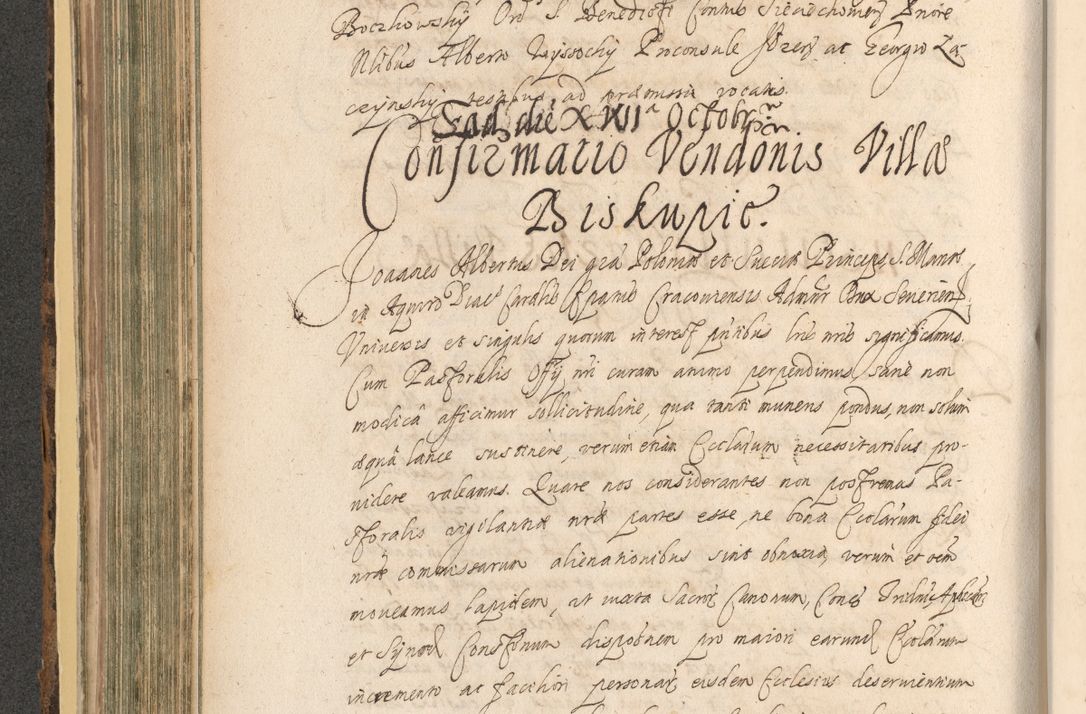 Boczkowskij Ord S. Benedicti Contus Sieciechoviens Priore
Nlibus Alberto Wyssocky Proconsule Ilzens ac Georgio Za
czynskij testibus ad præmissa vocatis.
Ead die XXII Octobris
Confirmatio Vendonis Villæ
Biskupie.
Joannes Albertus Dei gra Poloniæ et Sueciæ Princeps S. Mariæ
in Aquiro Diac Cardlis Epatus Cracoviensis Admnr Dux Severien
Universis et singulis quorum interest pntibus lris nris significamus.
Cum Pastoralis Offij nri curam animo perpendimus, sane non
modicâ afficimur sollicitudine, qua tanti muneris pondus, non solum
æquâ lance sustinere, verum etiam Ecclarum necessitatibus pro-
videre valeamus. Quare nos considerantes non postremas Pa-
storalis vigilantiæ nræ partes esse, ne bona Ecclarum fidei
nræ commissarum alienationibus sint obnoxia, verum et oem
moveamus lapidem, ut iuxta Sacros Canonum, Conc Tridni,
et Synod Constonum dispoonem pro maiori earund Ecclarum
incremento ac faciliori personas eisdem Ecclesijs deservientium